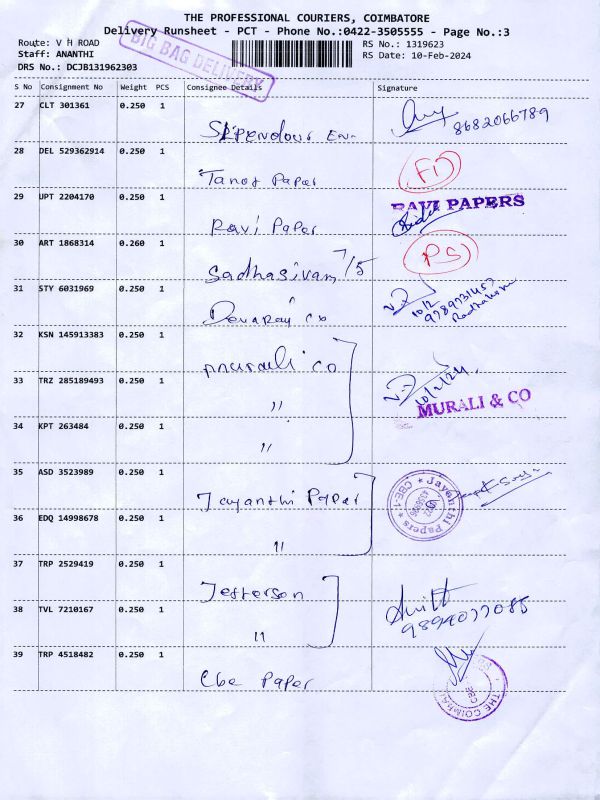 THE PROFESSIONAL COURIERS, COIMBATORE
Delivery Runsheet - PCT - Phone No.:0422-3505555 - Page No.:3
Route: V H ROAD
Staff: ANANTHI
DRS No.: DCJB131962303
BIG BAG DELIVERY
RS No.: 1319623
RS Date: 10-Feb-2024
S No Consignment No Weight PCS Consignee Details Signature
27 CLT 301361 0.250 1
8682066789
28 DEL 529362914 0.250 1
Paper
29 UPT 2204170 0.250 1 RAVI PAPERS
Ravi Paper
30 ART 1868314 0.260 1
Sadhasivam 7/5
31 STY 6031969 0.250 1
10/2
Co
32 KSN 145913383 0.250 1
Murali Co
33 TRZ 285189493 0.250 1
10/2/24
MURALI & CO
"
34 KPT 263484 0.250 1
"
35 ASD 3523989 0.250 1
Jayanthi Paper
Jayanthi Papers
CBE-1
36 EDQ 14998678 0.250 1
"
37 TRP 2529419 0.250 1
Jefferson
38 TVL 7210167 0.250 1
"
39 TRP 4518482 0.250 1
Cbe Paper